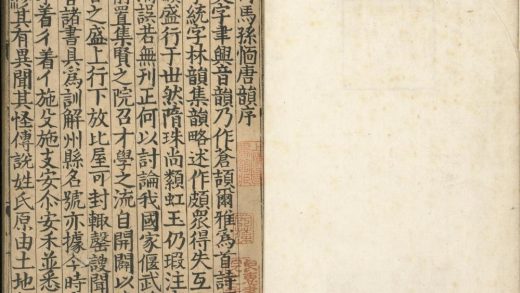 馬孫愐唐韻序
字聿興音韻乃作蒼頡爾雅為首詩
字統字林韻集韻略述作頗衆得失互
盛行于世然隋珠尚纇虹玉仍瑕注
誤若無刊正何以討論我國家偃武
置集賢之院召才學之流自開闢以
之盛上行下放比屋可封輒罄謏聞
諸書具為訓解州縣名號亦據今時
着彳着亻施殳施攴安尒安禾並悉
其有異聞其怪傳說姓氏原由土地